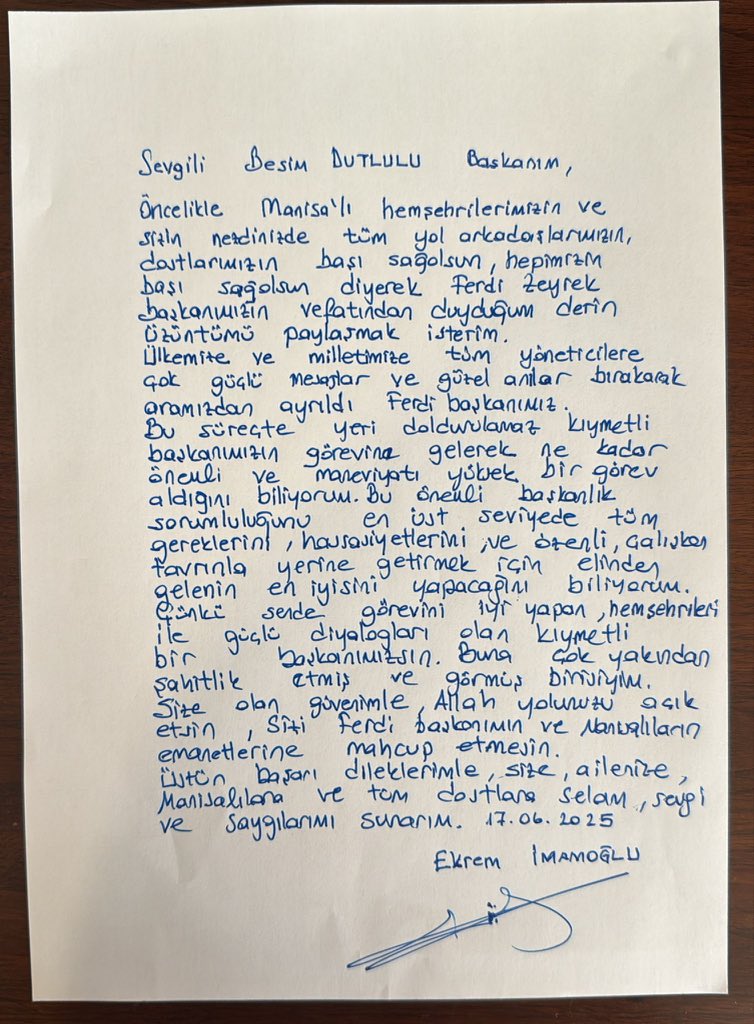 Sevgili Besim DUTLULU Başkanım,
Öncelikle Manisa'lı hemşehrilerimizin ve
sizin nezdinizde tüm yol arkadaşlarımızın,
dostlarımızın başı sağolsun, hepimizin
başı sağolsun diyerek Ferdi Zeyrek
başkanımızın vefatından duyduğum derin
üzüntümü paylaşmak isterim.
Ülkemize ve milletimize tüm yöneticilere
çok güçlü mesajlar ve güzel anılar bırakarak
aramızdan ayrıldı Ferdi başkanımız.
Bu süreçte yeri doldurulamaz kıymetli
başkanımızın görevine gelerek ne kadar
önemli ve maneviyatı yüksek bir görev
aldığını biliyorum. Bu önemli başkanlık
sorumluluğunu en üst seviyede tüm
gereklerini, hassasiyetlerini, ve özenli, çalışkan
tavrınla yerine getirmek için elinden
gelenin en iyisini yapacağını biliyorum.
Çünkü sende görevini iyi yapan, hemşehrileri
ile güçlü diyalogları olan kıymetli
bir başkanımızsın. Buna çok yakından
şahitlik etmiş ve görmüş birisiyim.
Size olan güvenimle, Allah yolunuzu açık
etsin, Sizi Ferdi başkanımın ve Manisalıların
emanetlerine mahcup etmesin.
Üstün başarı dileklerimle, size, ailenize,
Manisalılara ve tüm dostlara selam, sevgi
ve saygılarımı sunarım. 17.06.2025
Ekrem İMAMOĞLU